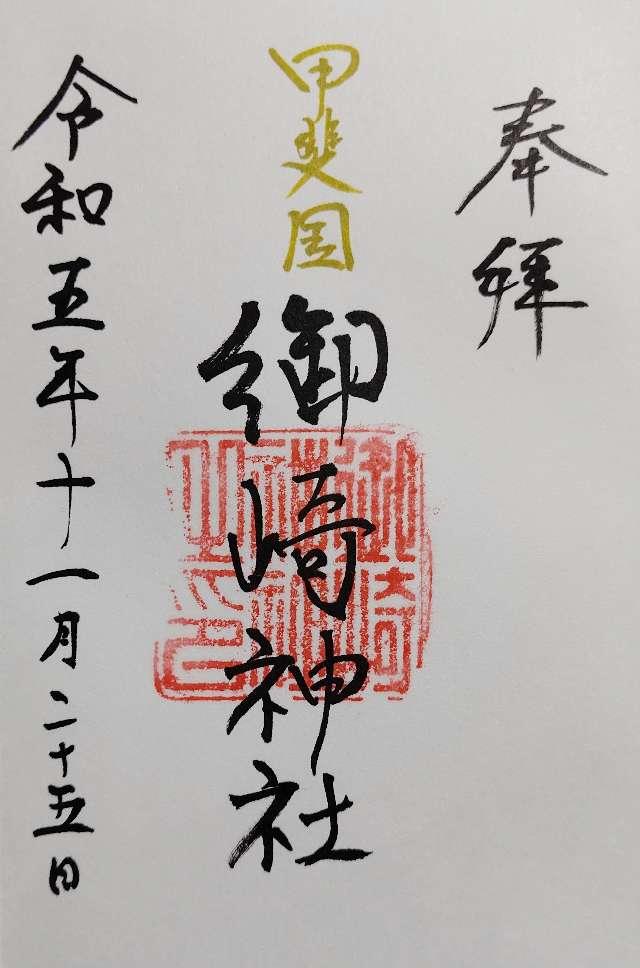 奉拝
甲斐国
御崎神社
令和五年十一月二十五日